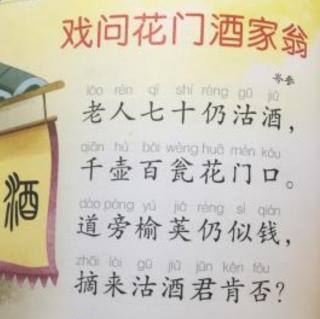 戏问花门酒家翁
岑参
lǎo rén qī shí réng gū jiǔ
老人七十仍沽酒，
qiān hú bǎi wèng huā mén kǒu
千壶百瓮花门口。
dào páng yú jiá réng sì qián
道旁榆荚仍似钱，
zhāi lái gū jiǔ jūn kěn fǒu
摘来沽酒君肯否？
酒